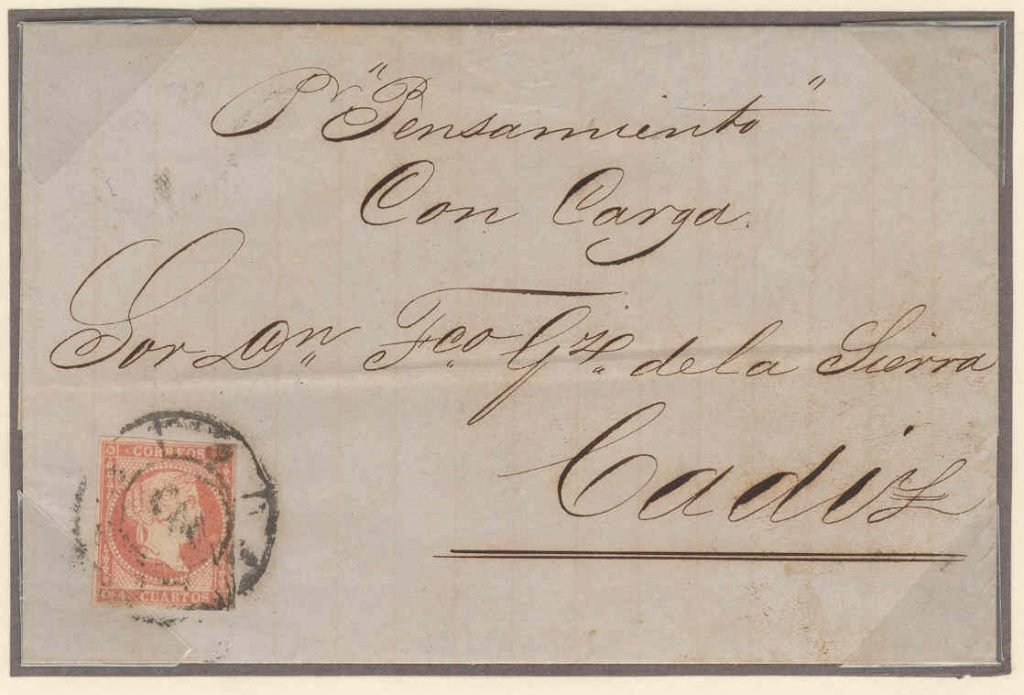 Pr "Pensamiento"
Con Carga.
Sor Dn Fco Gz. de la Sierra
Cadiz
CORREOS
4 CUARTOS